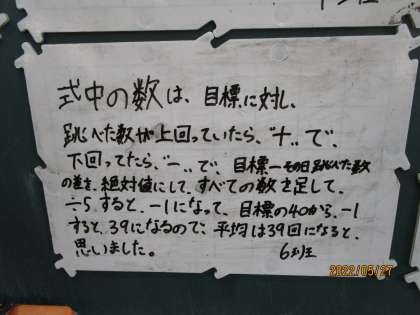 式中の数は、目標に対し、
跳べた数が上回っていたら、"+"で、
下回ってたら、"−"で、目標−その日跳べた数
の差を、絶対値にして、すべての数を足して、
÷5すると、−1になって、目標の40から、−1
すると、39になるので、平均は39回になると、
思いました。 6班
2022/05/27